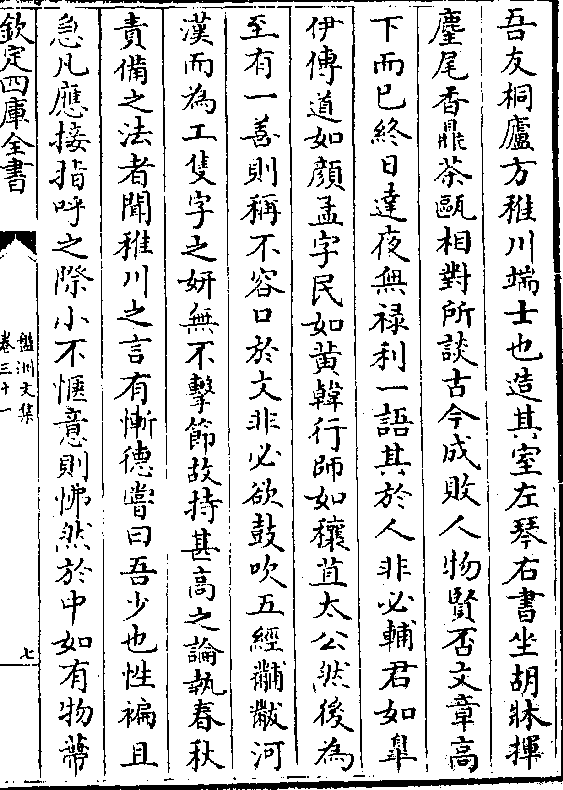 吾友桐廬方稚川端士也造其室左琴右書坐胡牀揮
麈尾香鼎茶甌相對所談古今成敗人物賢否文章高
下而已終日達夜無祿利一語其於人非必輔君如臯
伊傅道如顔孟字民如黄韓行師如穰苴太公然後為
至有一善則稱不容口於文非必欲鼓吹五經黼黻河
漢而為工隻字之妍無不擊節故持甚高之論執春秋
責備之法者聞稚川之言有慚德嘗曰吾少也性褊且
急凡應接指呼之際小不愜意則怫然於中如有物蔕
欽定四庫全書
盤洲文集
卷三十一
七